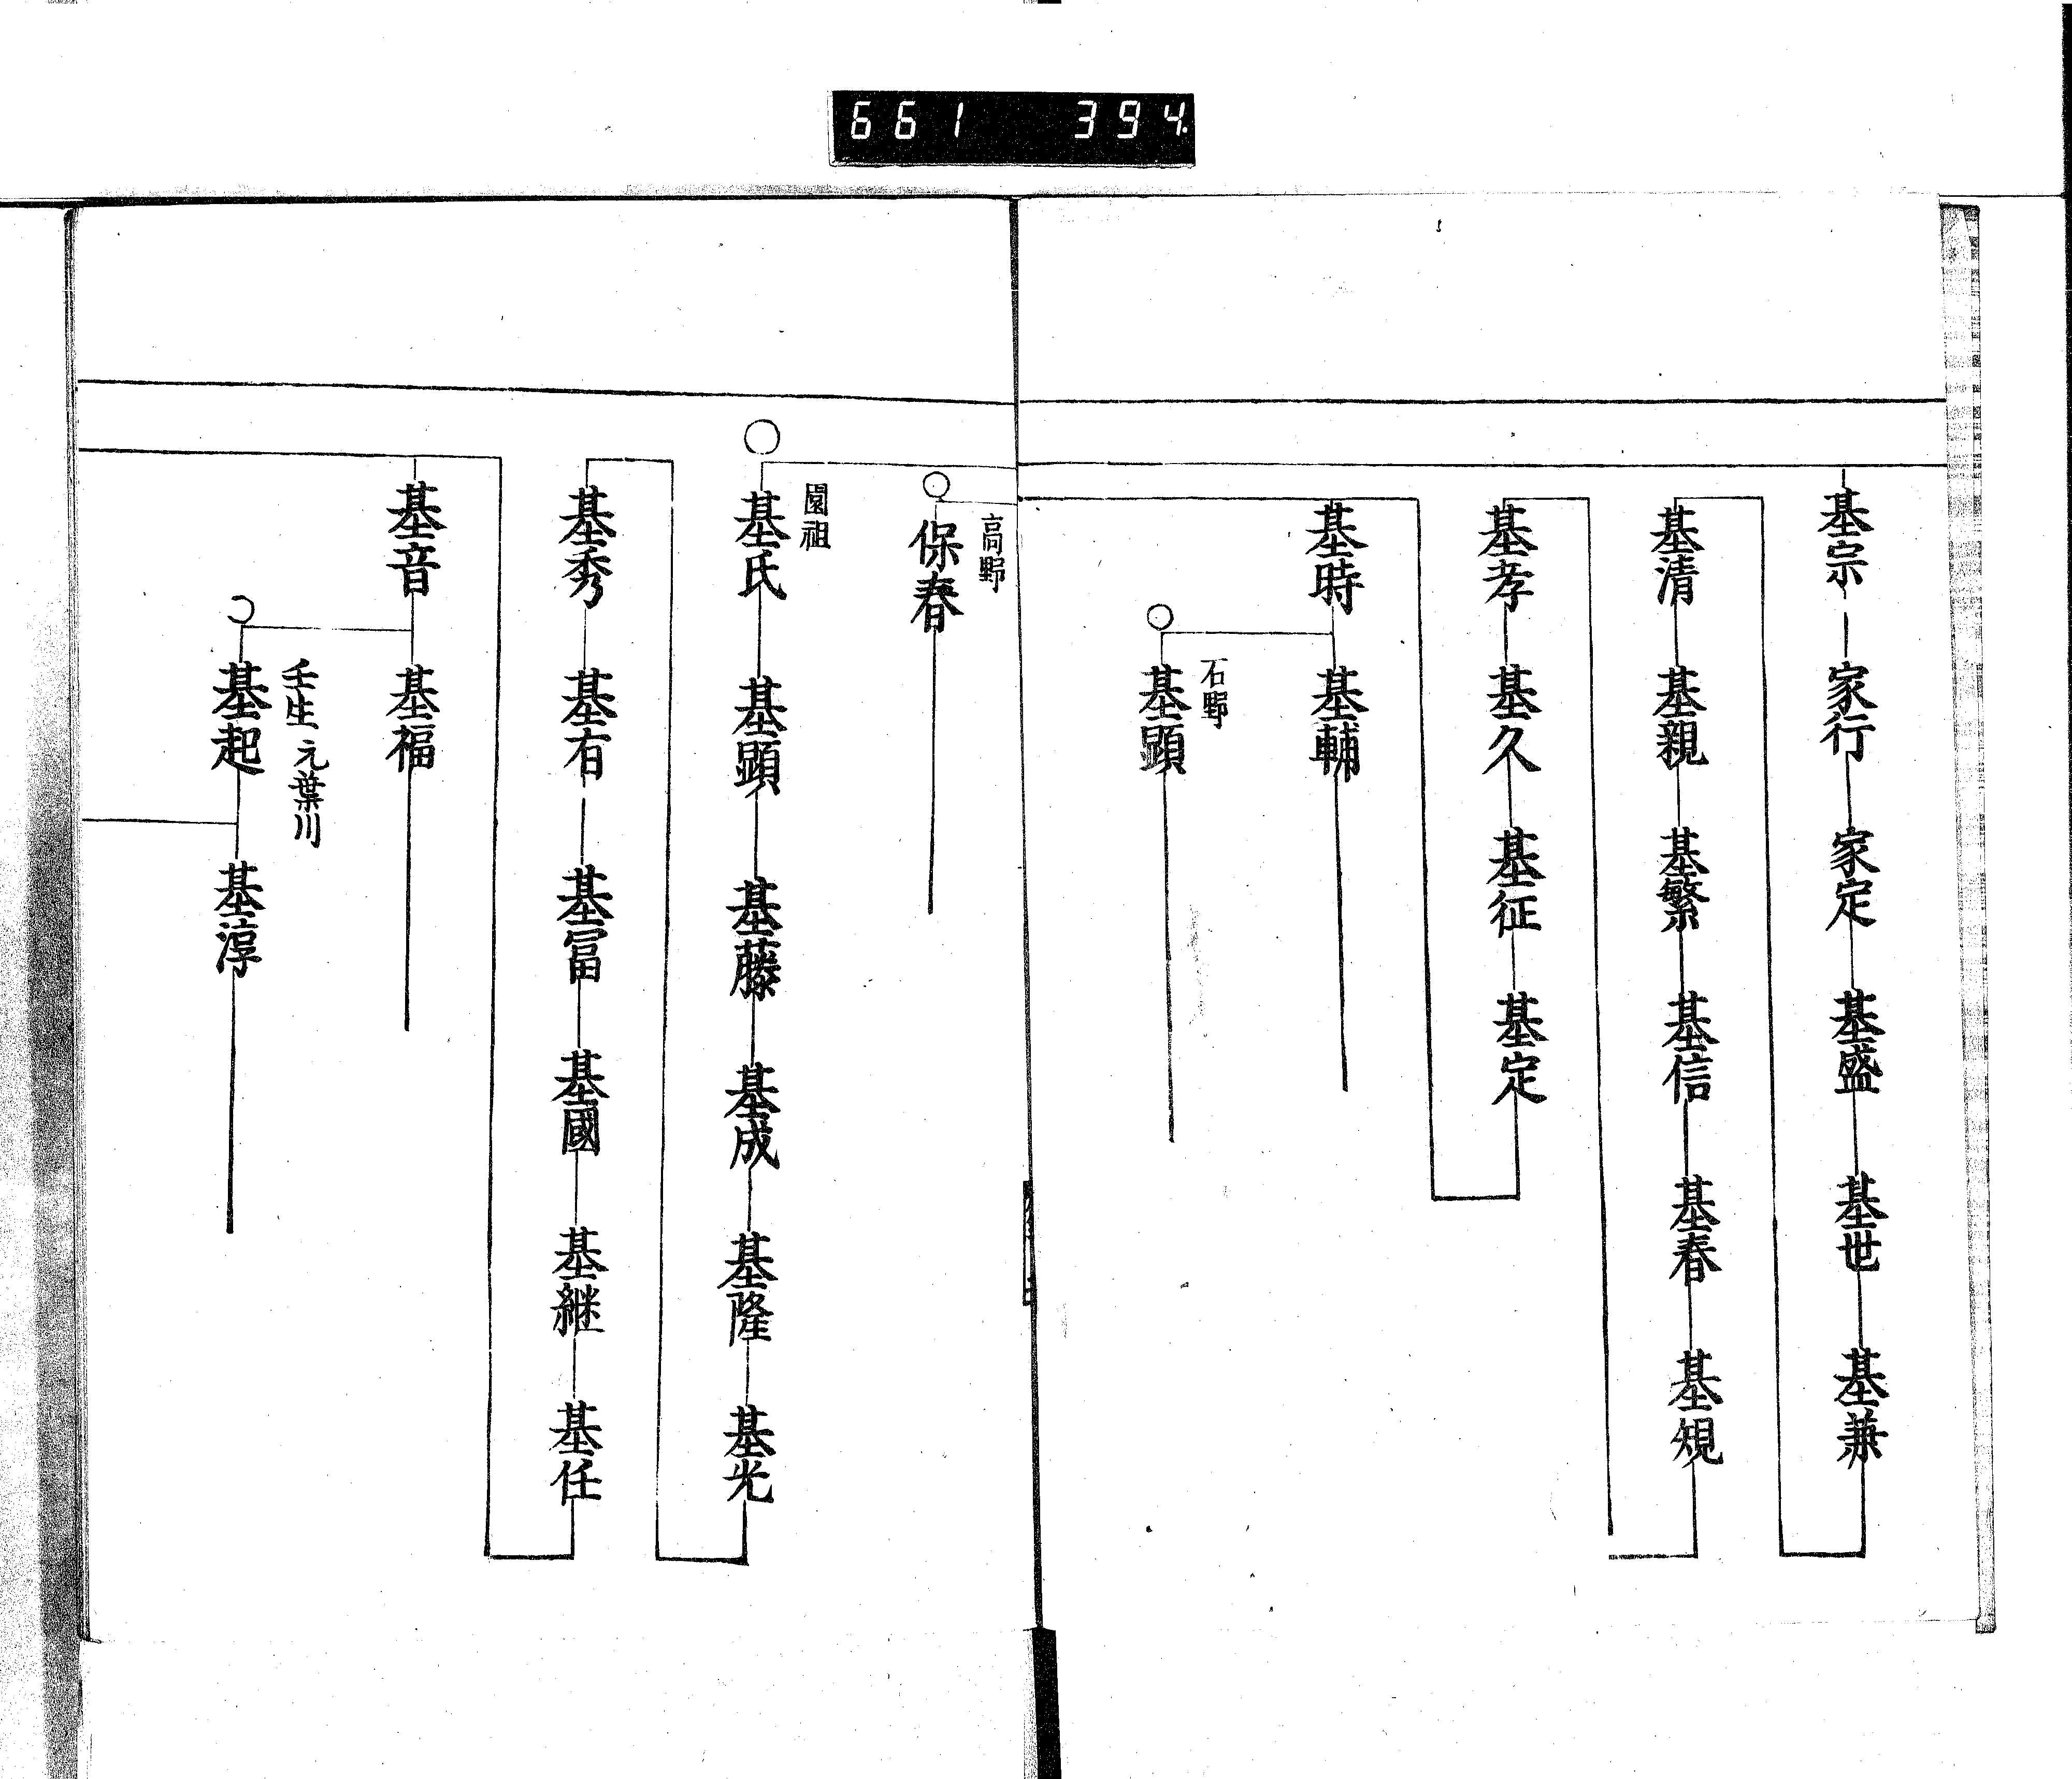 661 394
基宗 家行 家定 基盛 基世 基兼
基清 基親 基繁 基信 基春 基規
基孝 基久 基征 基定
基時 基輔
石野
基顕
高野
保春
園祖
基氏 基顕 基藤 基成 基隆 基光
基秀 基有 基冨 基國 基継 基任
基音 基福
壬生 元葉川
基起 基淳